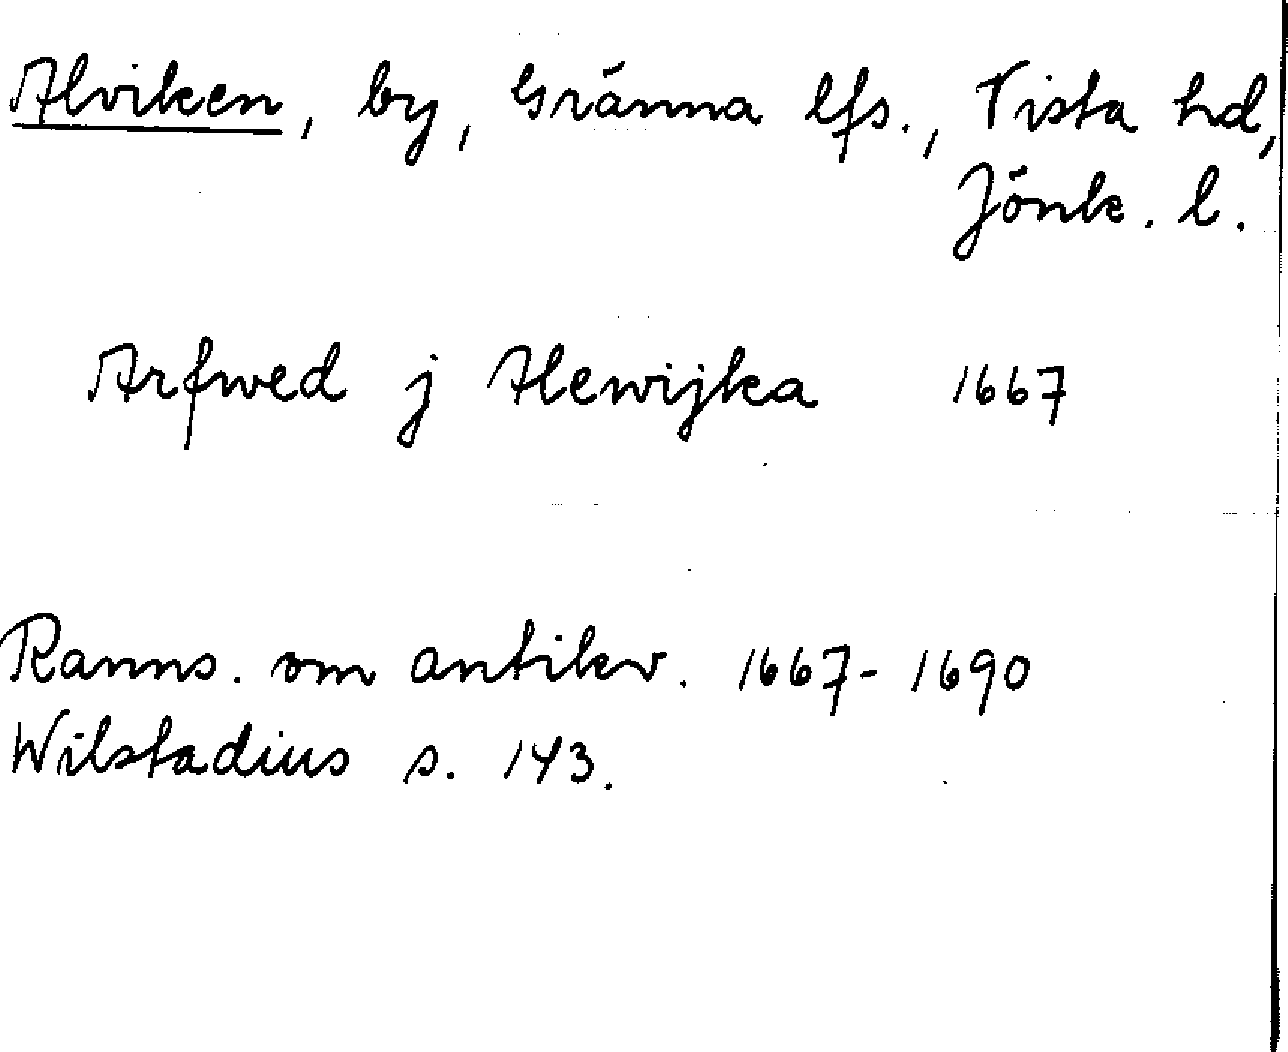 Alviken, by, Gränna lfs., Vista hd,
Jönk. l.
Arfwed j Alewijka 1667
Ranns. om antikv. 1667-1690
Wilstadius s. 143.